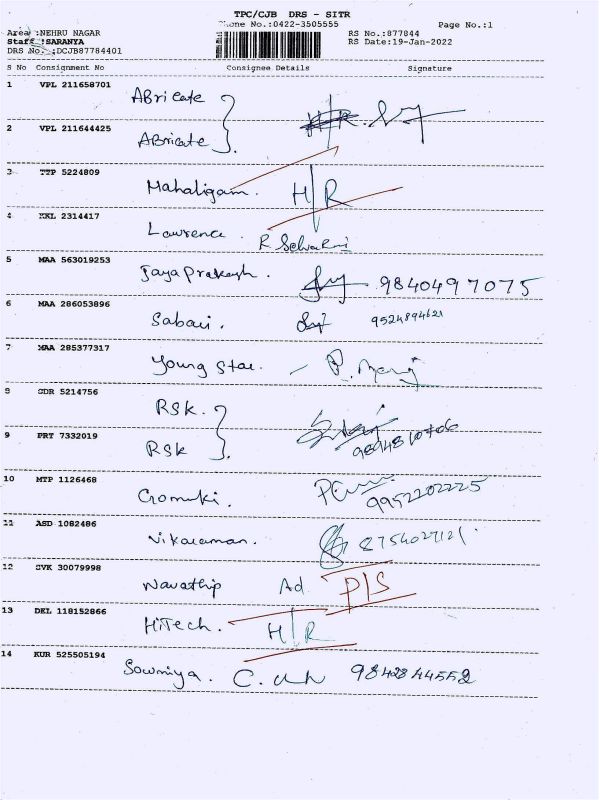 TPC/CJB DRS - SITR
Phone No.:0422-3505555
Page No.:1
Area :NEHRU NAGAR
Staff :SARANYA
DRS No. :DCJB87784401
RS No.:877844
RS Date:19-Jan-2022
S No Consignment No Consignee Details Signature
1 VPL 211658701 ABricate
2 VPL 211644425 ABricate
3 TTP 5224809 Mahaligam. H/R
4 KKL 2314417 Lawrence. R Selvakni
5 MAA 563019253 Jaya Prakash. 9840497075
6 MAA 286053896 Sabari. 9524894621
7 MAA 285377317 Young Star.
8 GDR 5214756 RSK.
9 PRT 7332019 RSK
10 MTP 1126468 Gomuki. 9952202225
11 ASD 1082486 Vikaraman. 8754027121
12 SVK 30079998 Navathip Ad. P/S
13 DEL 118152866 HiTech. H/R
14 KUR 525505194 Sowmiya. 9842844552